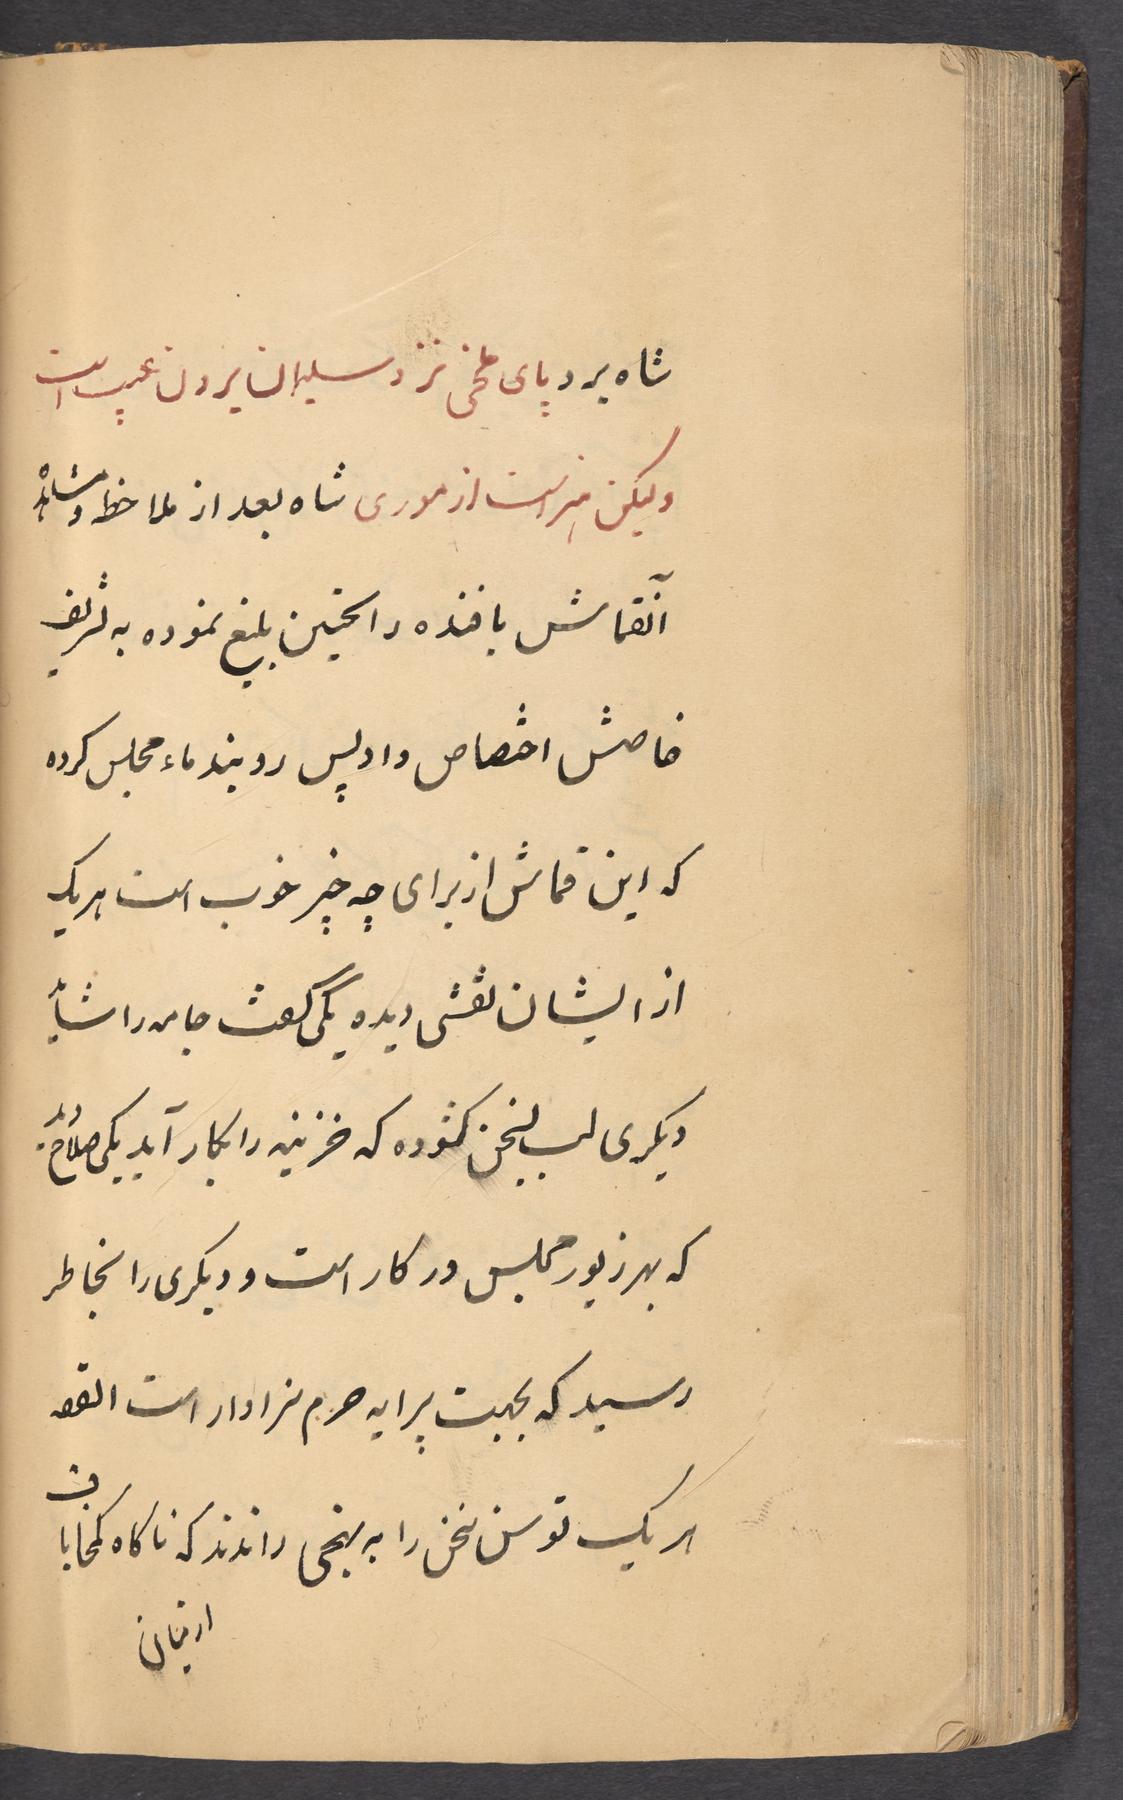 شاه برد پای ملخی نزد سلیمان بردن عیب است
ولیکن هنر است از موری شاه بعد از ملاحظه و مشاهده
آنقماش بافنده را تحسین بلیغ نموده به تشریف
خاصش اختصاص داد پس رو بندماء مجلس کرده
که این قماش از برای چه چیز خوب است هر یک
از ایشان نقشی دیده یکی گفت جامه را شاید
دیگری لب بسخن کشوده که خزینه را بکار آید یکی صلاح دید
که بهر زیور مجلس در کار است و دیگری را بخاطر
رسید که بجهت پرایه حرم سزاوار است القصه
هر یک توسن سخن را به نهجی راندند که ناکاه کمخاباف
از میان